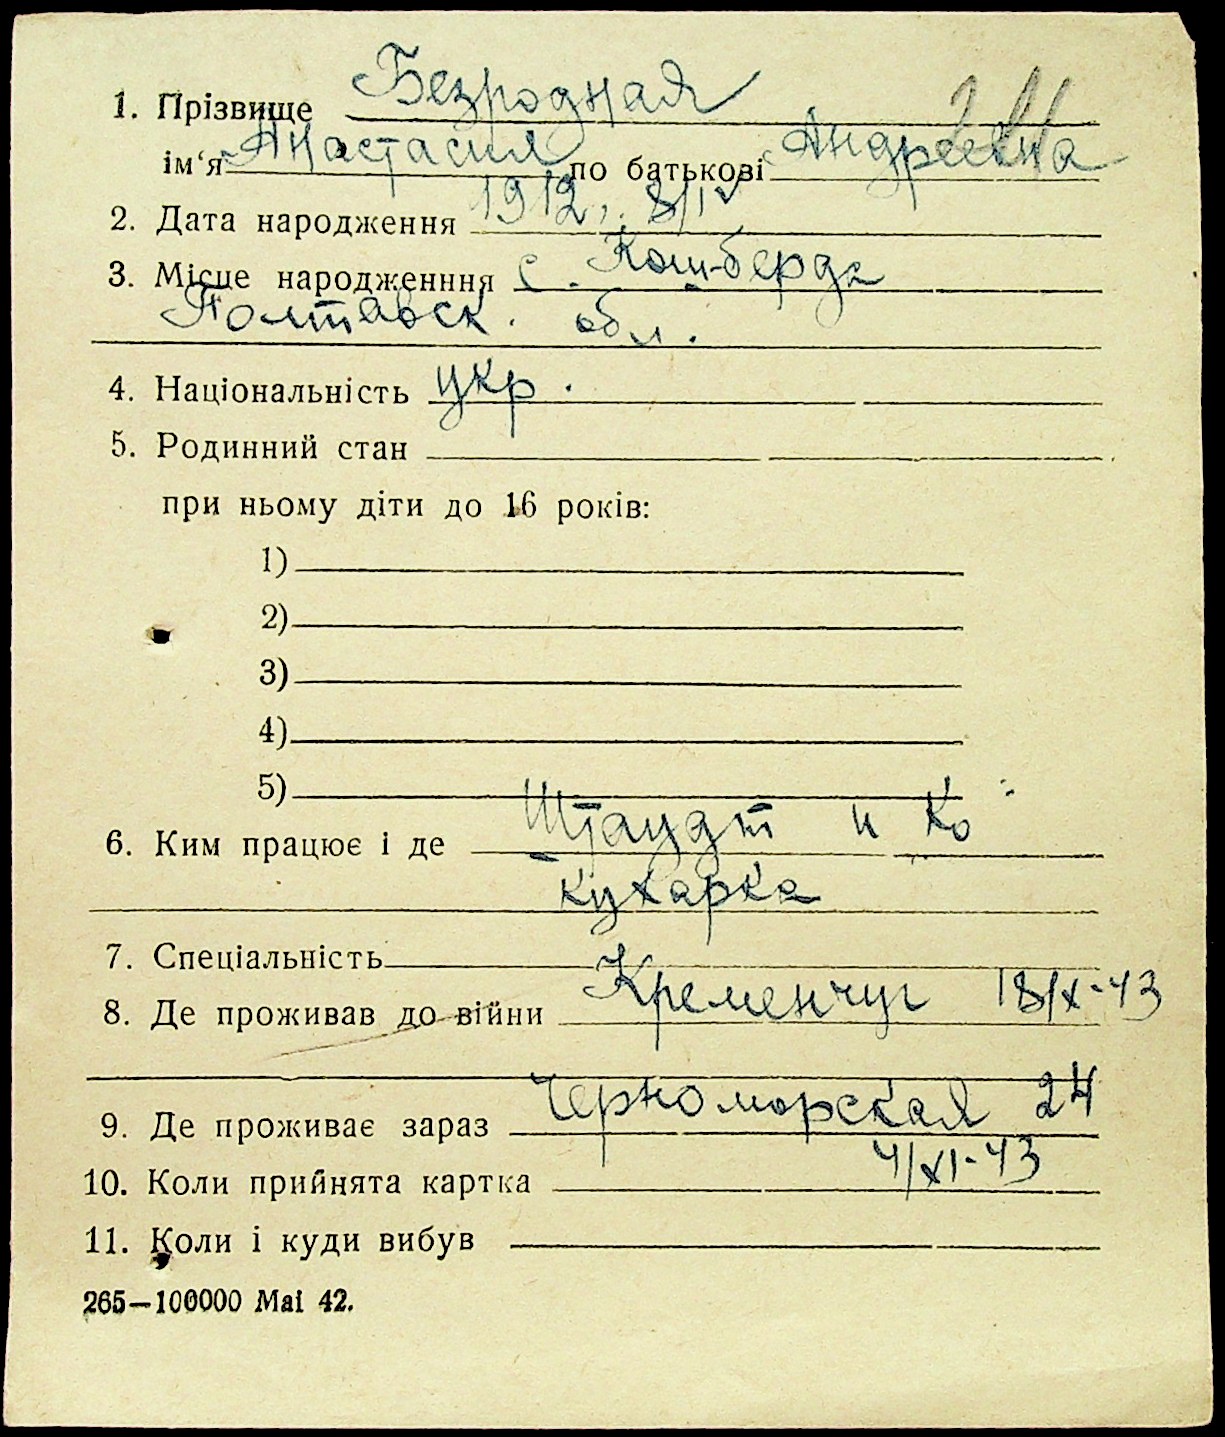 1. Прізвище Безродная
ім‘я Анастасия по батькові Андреевна
2. Дата народження 1912, 8/IV
3. Місце народженння с. Кам-берда
Полтавск. обл.
4. Національність укр.
5. Родинний стан
при ньому діти до 16 років:
1)
2)
3)
4)
5)
6. Ким працює і де Штаудт и Ко
кухарка
7. Спеціальність
8. Де проживав до війни Кременчуг 18/X-43
9. Де проживає зараз Черноморская 24
10. Коли прийнята картка 4/XI-43
11. Коли і куди вибув
265—100000 Mai 42.